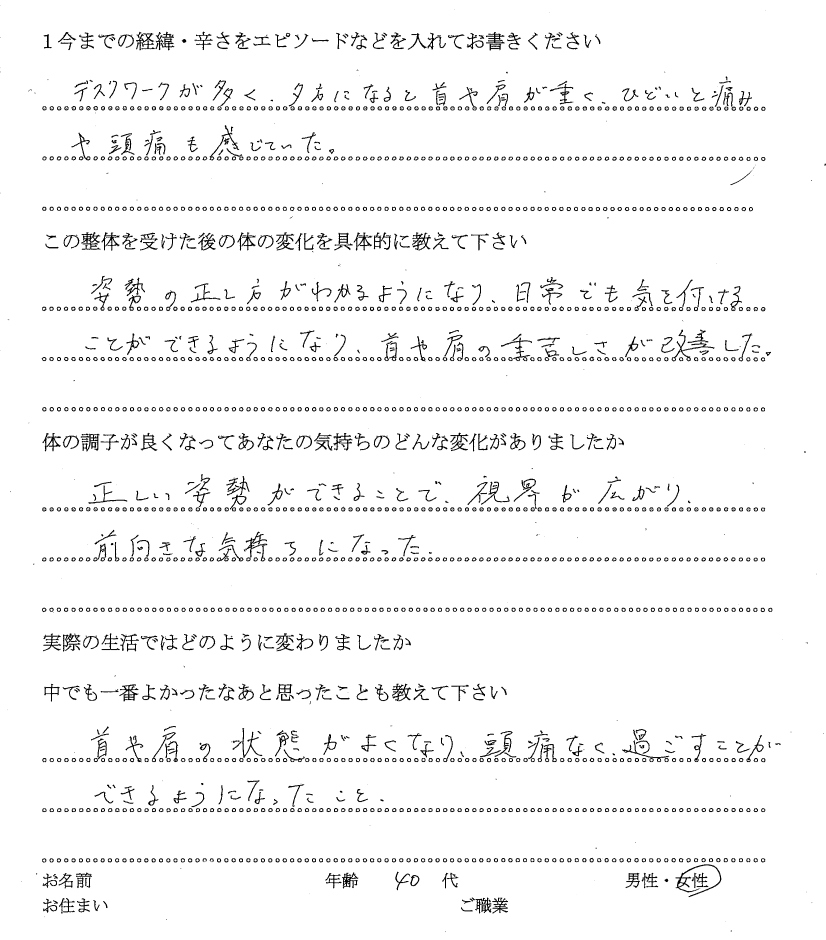 1今までの経緯・辛さをエピソードなどを入れてお書きください
デスクワークが多く、夕方になると首や肩が重く、ひどいと痛み
や頭痛も感じていた。
この整体を受けた後の体の変化を具体的に教えて下さい
姿勢の正し方がわかるようになり、日常でも気を付ける
ことができるようになり、首や肩の重苦しさが改善した。
体の調子が良くなってあなたの気持ちのどんな変化がありましたか
正しい姿勢ができることで、視界が広がり、
前向きな気持ちになった。
実際の生活ではどのように変わりましたか
中でも一番よかったなあと思ったことも教えて下さい
首や肩の状態がよくなり、頭痛なく、過ごすことが
できるようになったこと。
お名前 年齢 40 代 男性・女性
お住まい ご職業